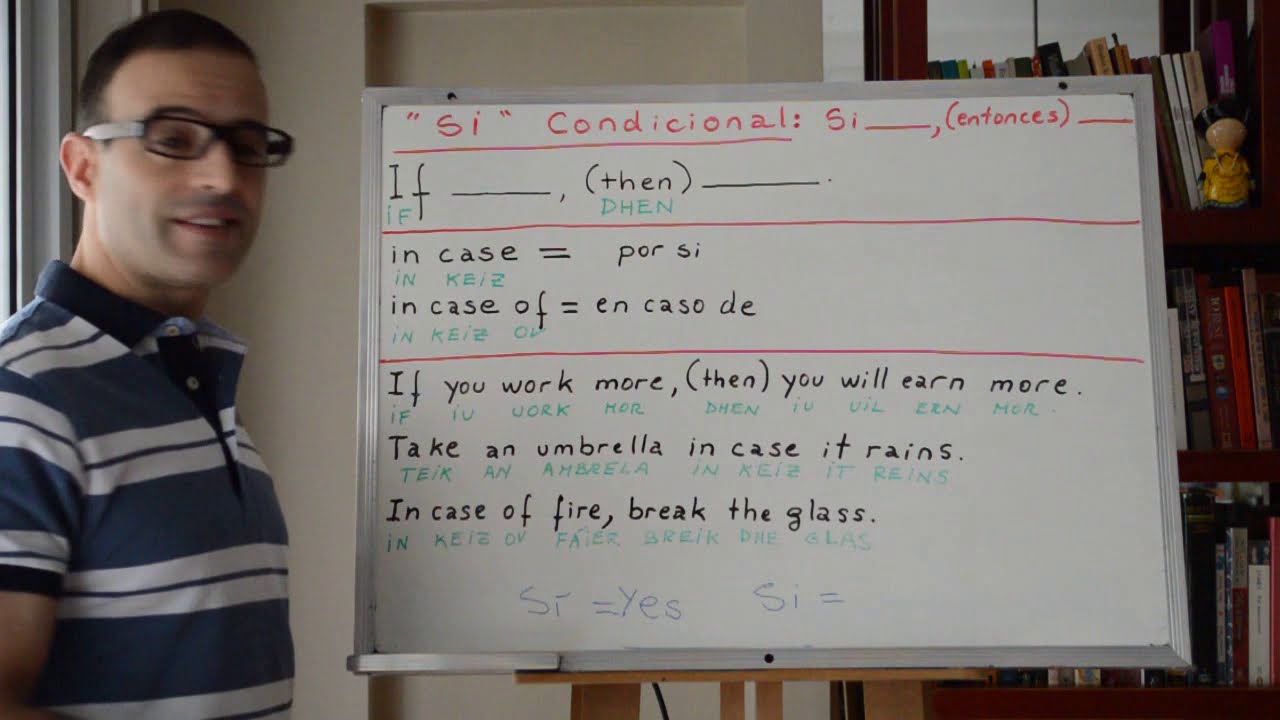 "Si" Condicional: Si ____, (entonces) ____
If ____, (then) ____.
iF DHEN
in case = por si
iN KEiZ
in case of = en caso de
iN KEiZ OV
If you work more, (then) you will earn more.
iF iU UORK MOR DHEN iU UiL ERN MOR.
Take an umbrella in case it rains.
TEiK AN AMBRELA iN KEiZ iT REiNS
In case of fire, break the glass.
iN KEiZ OV FÁiER BREiK DHE GLAS
Sí =Yes Si =